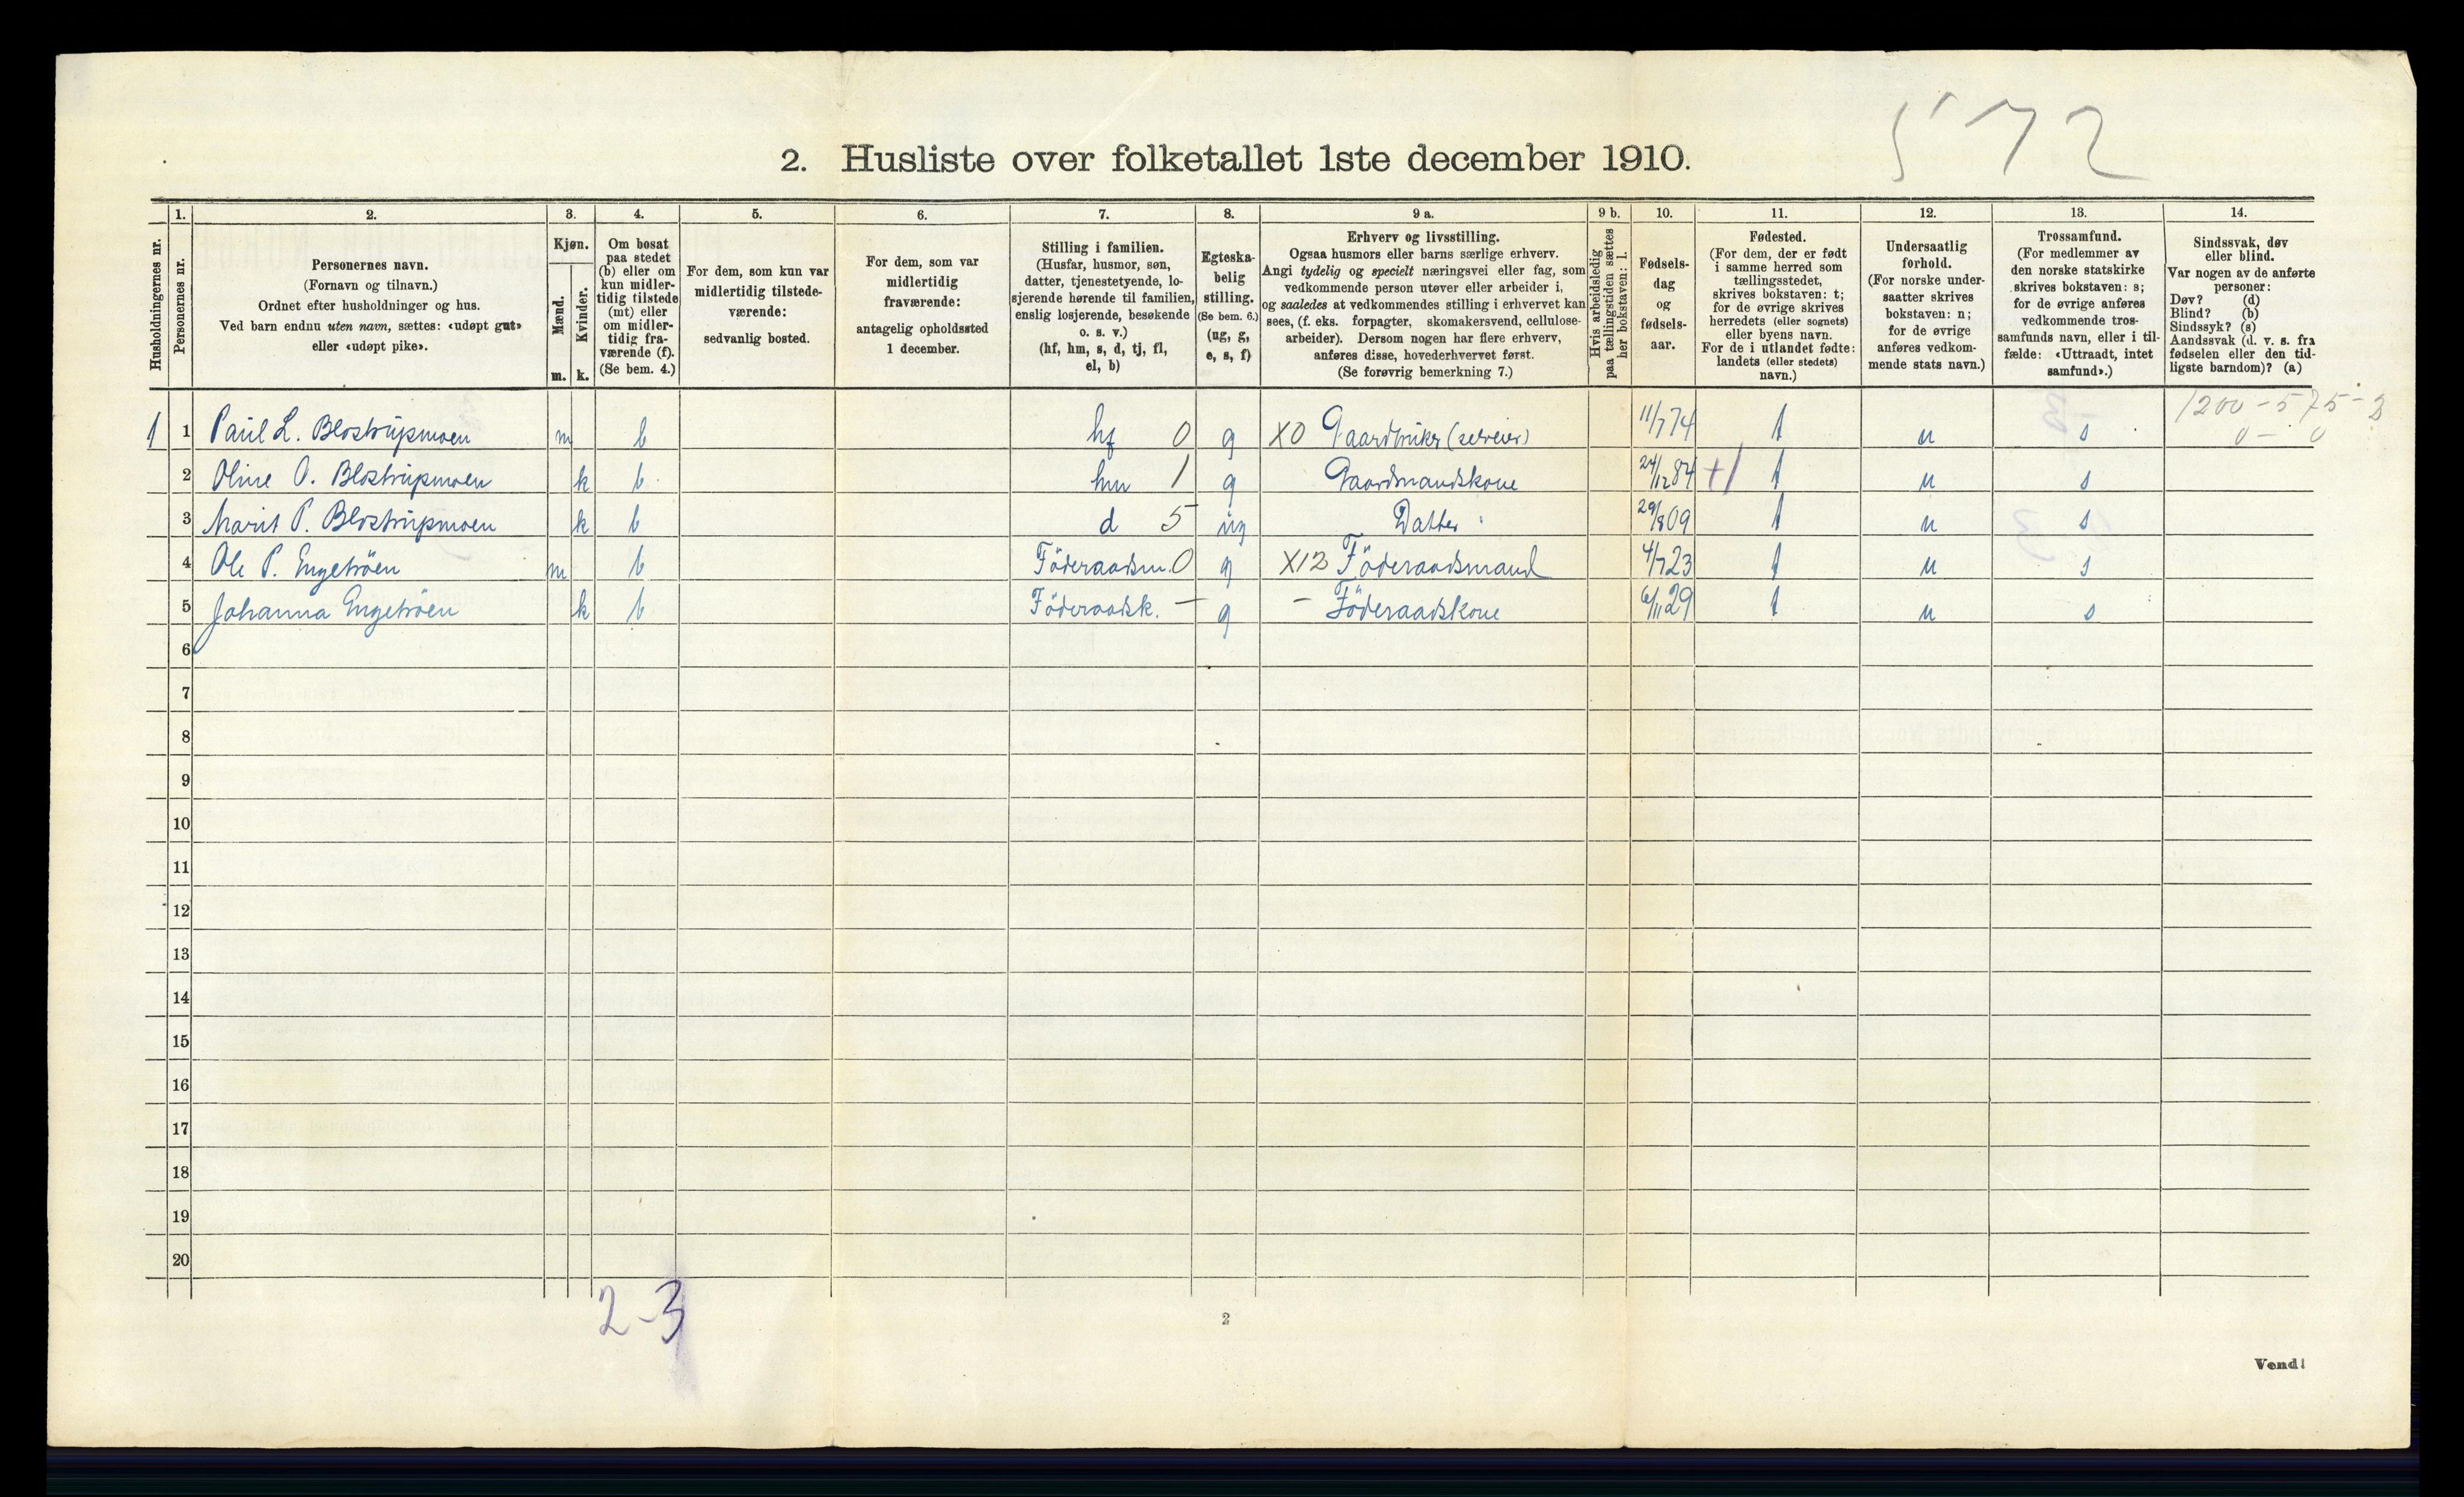 572
2. Husliste over folketallet 1ste december 1910.
Husholdningernes nr.
1.
Personernes nr.
2.
Personernes navn.
(Fornavn og tilnavn.)
Ordnet efter husholdninger og hus.
Ved barn endnu uten navn, sættes: «udøpt gut»
eller «udøpt pike».
3.
Kjøn.
Mænd.
Kvinder.
m. k.
4.
Om bosat
paa stedet
(b) eller om
kun midler-
tidig tilstede
(mt) eller
om midler-
tidig fra-
værende (f).
(Se bem. 4.)
5.
For dem, som kun var
midlertidig tilstede-
værende:
sedvanlig bosted.
6.
For dem, som var
midlertidig
fraværende:
antagelig opholdssted
1 december.
7.
Stilling i familien.
(Husfar, husmor, søn,
datter, tjenestetyende, lo-
sjerende hørende til familien,
enslig losjerende, besøkende
o. s. v.)
(hf, hm, s, d, tj, fl,
el, b)
8.
Egteska-
belig
stilling.
(Se bem. 6.)
(ug, g,
e, s, f)
9 a.
Erhverv og livsstilling.
Ogsaa husmors eller barns særlige erhverv.
Angi tydelig og specielt næringsvei eller fag, som
vedkommende person utøver eller arbeider i,
og saaledes at vedkommendes stilling i erhvervet kan
sees, (f. eks. forpagter, skomakersvend, cellulose-
arbeider). Dersom nogen har flere erhverv,
anføres disse, hovederhvervet først.
(Se forøvrig bemerkning 7.)
9 b.
Hvis arbeidsledig
paa tællingstiden sættes
her bokstaven: l.
10.
Fødsels-
dag
og
fødsels-
aar.
11.
Fødested.
(For dem, der er født
i samme herred som
tællingsstedet,
skrives bokstaven: t;
for de øvrige skrives
herredets (eller sognets)
eller byens navn.
For de i utlandet fødte:
landets (eller stedets)
navn.)
12.
Undersaatlig
forhold.
(For norske under-
saatter skrives
bokstaven: n;
for de øvrige
anføres vedkom-
mende stats navn.)
13.
Trossamfund.
(For medlemmer av
den norske statskirke
skrives bokstaven: s;
for de øvrige anføres
vedkommende tros-
samfunds navn, eller i til-
fælde: «Uttraadt, intet
samfund».)
14.
Sindssvak, døv
eller blind.
Var nogen av de anførte
personer:
Døv? (d)
Blind? (b)
Sindssyk? (s)
Aandssvak (d. v. s. fra
fødselen eller den tid-
ligste barndom)? (a)
1200-575-2
0 - 0
1 1 Paul L. Blostrupmoen m b hf 0 g X0 Gaardbruker (selveier) 11/7 74 t n s
2 Oline O. Blostrupmoen k b hm 1 g Gaardmandskone 24/12 84 +1 t n s
3 Marit P. Blostrupmoen k b d 5 ug Datter 29/8 09 t n s
4 Ole P. Engetröen m b Föderaadsm. 0 g X12 Föderaadsmand 4/7 23 t n s
5 Johanna Engetröen k b Föderaadsk. - g - Föderaadskone 6/11 29 t n s
6
7
8
9
10
11
12
13
14
15
16
17
18
19
20
2-3
2
Vend!